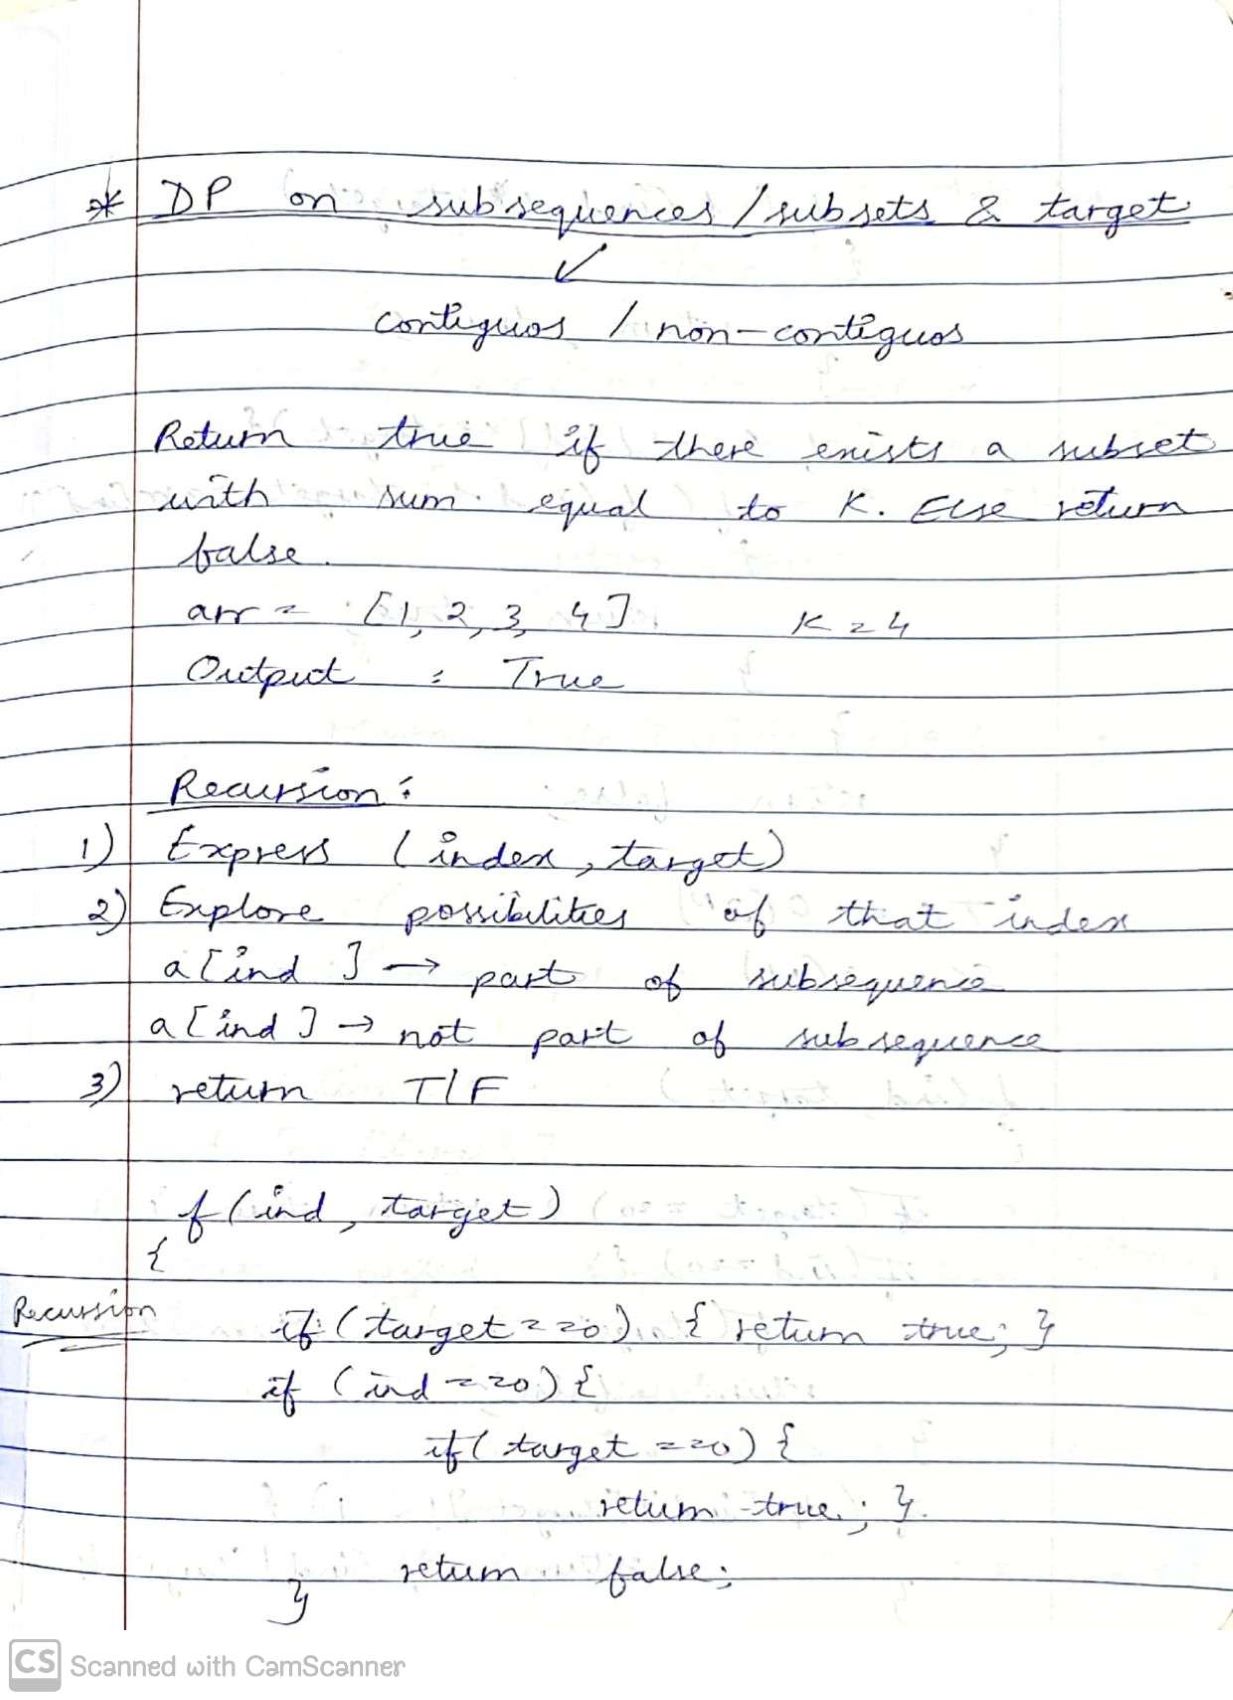 * DP on subsequences / subsets & target
↙
contiguos / non-contiguos
Return true if there exists a subset
with sum equal to K. Else return
false.
arr = [1, 2, 3, 4] K = 4
Output : True
Recursion :
1) Express (index, target)
2) Explore possibilities of that index
a[ind] → part of subsequence
a[ind] → not part of subsequence
3) return T/F
f(ind, target)
{
Recursion if (target == 0) { return true; }
if (ind == 0) {
if (target == 0) {
return true; }
return false;
}
CS Scanned with CamScanner